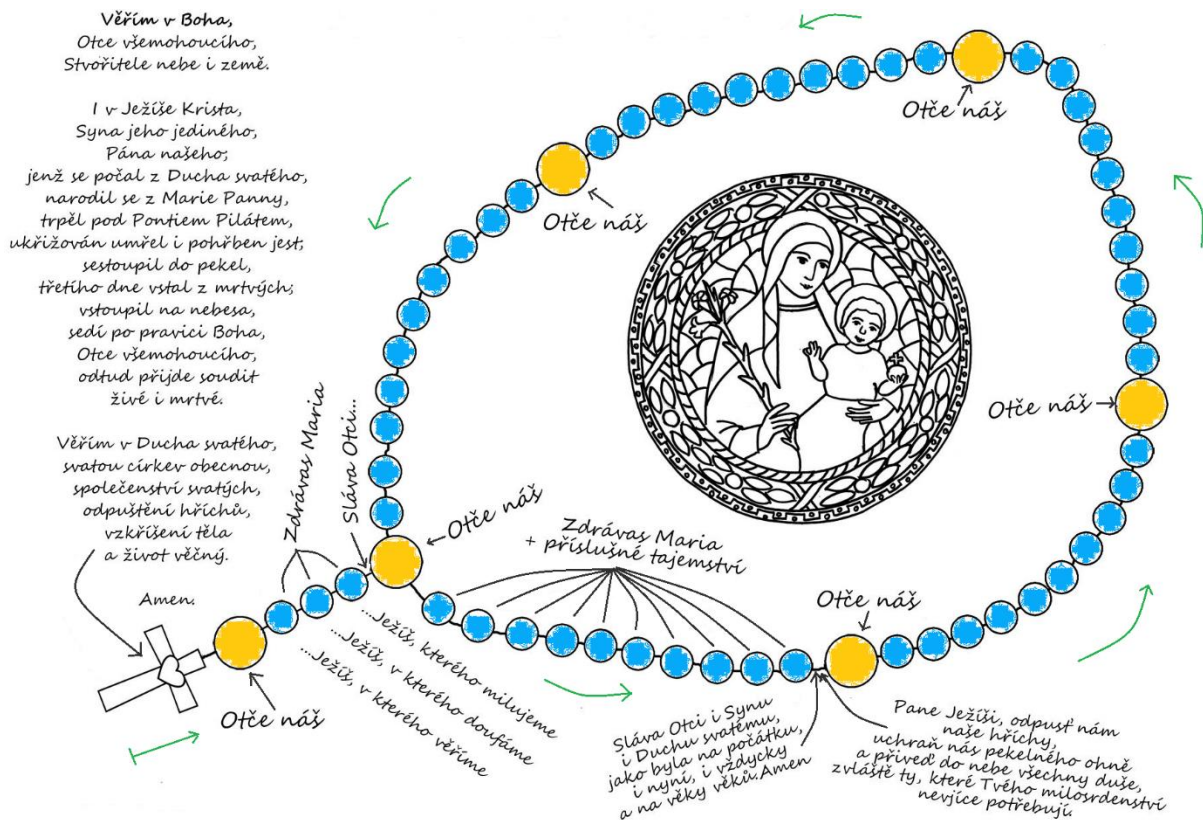 Věřím v Boha,
Otce všemohoucího,
Stvořitele nebe i země.
I v Ježíše Krista,
Syna jeho jediného,
Pána našeho;
jenž se počal z Ducha svatého,
narodil se z Marie Panny,
trpěl pod Pontiem Pilátem,
ukřižován umřel i pohřben jest;
sestoupil do pekel,
třetího dne vstal z mrtvých;
vstoupil na nebesa,
sedí po pravici Boha,
Otce všemohoucího,
odtud přijde soudit
živé i mrtvé.
Věřím v Ducha svatého,
svatou církev obecnou,
společenství svatých,
odpuštění hříchů,
vzkříšení těla
a život věčný.
Amen.
Otče náš
Zdrávas Maria
...Ježíš, v kterého věříme
...Ježíš, v kterého doufáme
...Ježíš, kterého milujeme
Sláva Otci...
Otče náš
Zdrávas Maria
+ příslušné tajemství
Sláva Otci i Synu
i Duchu svatému,
jako byla na počátku,
i nyní, i vždycky
a na věky věků.Amen
Pane Ježíši, odpusť nám
naše hříchy,
uchraň nás pekelného ohně
a přiveď do nebe všechny duše,
zvláště ty, které Tvého milosrdenství
nevjíce potřebují.
Otče náš
Otče náš
Otče náš
Otče náš